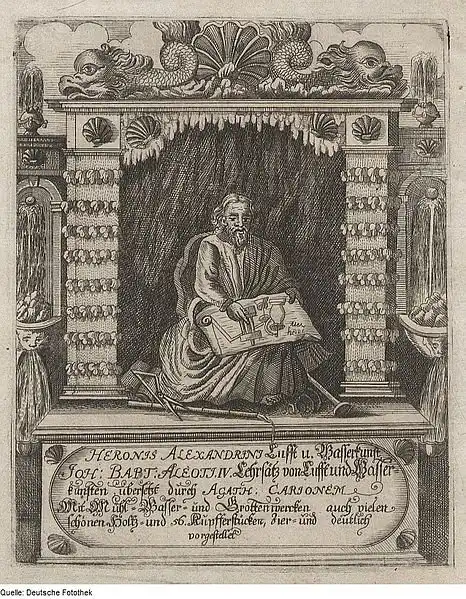 HERONIS ALEXANDRINI Lufft u. Wasserkunst
JOH: BAPT: ALEOTI, IV. Lehrsätz von Lufft und Wasser-
künsten übersetzt durch AGATH: CARIONEM
Mit Mühl- Wasser- und Grottenwercken auch vielen
schönen Holtz- und 96. Kupfferstücken, zier- und deutlich
vorgestellet
Quelle: Deutsche Fotothek